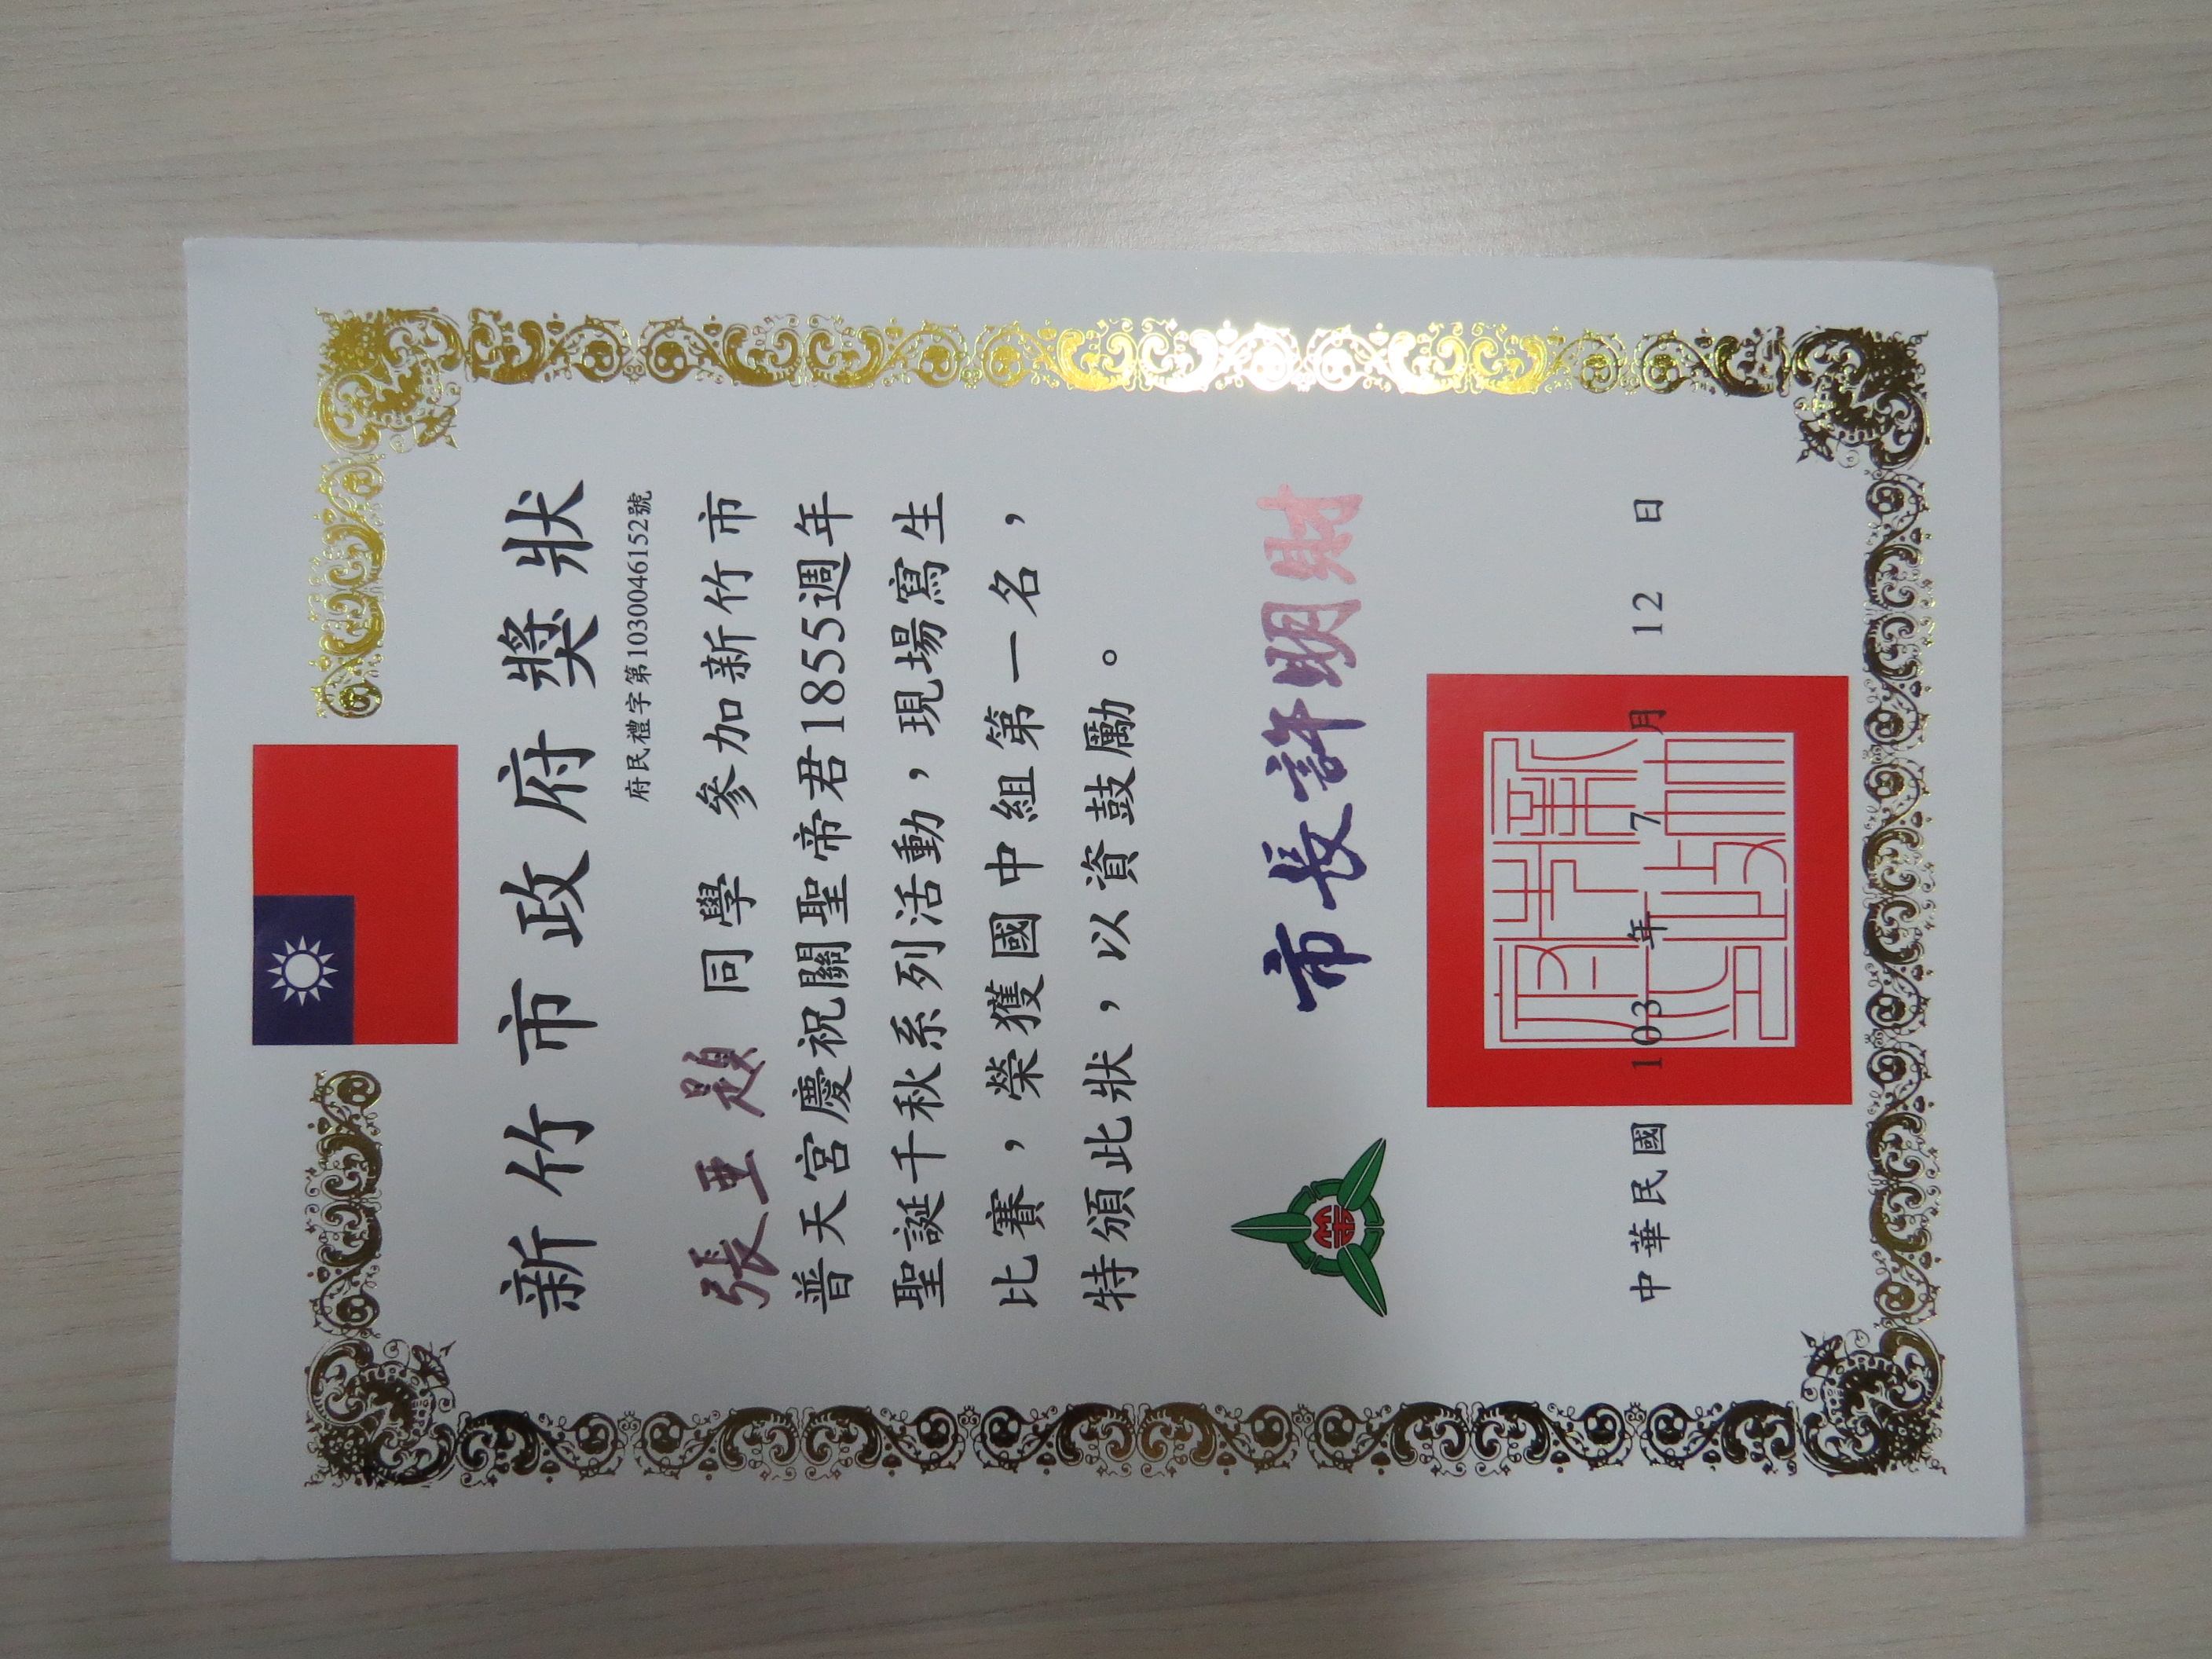 新竹市政府獎狀
府民禮字第1030046152號
張亜題 同學 參加新竹市
普天宮慶祝關聖帝君1855週年
聖誕千秋系列活動，現場寫生
比賽，榮獲國中組第一名，
特頒此狀，以資鼓勵。
市長許明財
中華民國 103 年 7 月 12 日